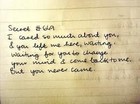 Secret #621
I cared so much about you,
& you left me here, waiting.
Waiting for you to change
your mind & come back to me.
But you never came.